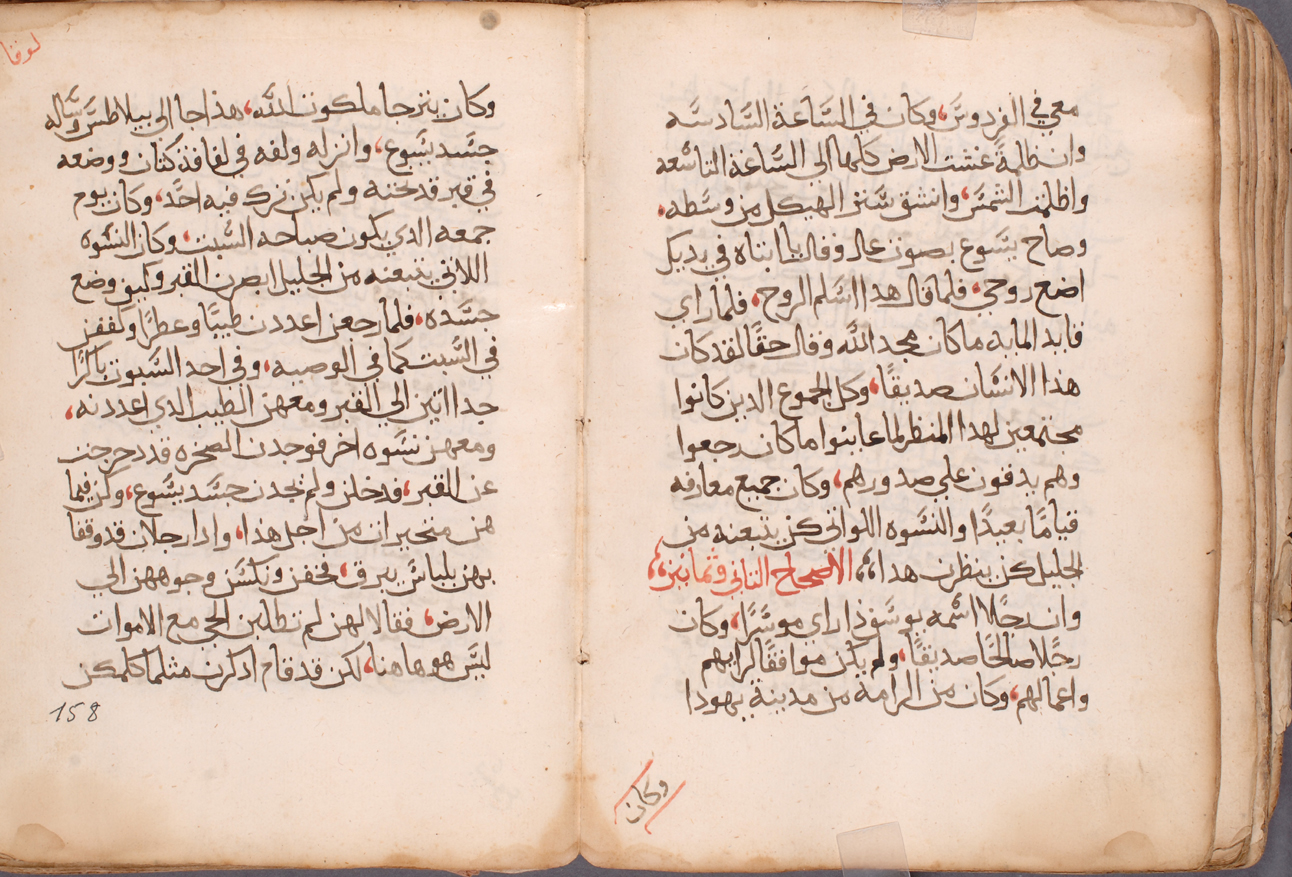 معي في الفردوس، وكان في الساعة السادسه
وان ظلمةً غشت الارض كلها الي الساعة التاسعه
واظلمت الشمس، وانشق ستر الهيكل من وسطه،
وصاح يسوع بصوت عال وقال يا ابتاه في يديك
اضع روحي، فلما قال هدا اسلم الروح، فلما راي
قايد المايه ما كان مجد الله وقال حقًا لقد كان
هذا الانسان صديقًا، وكل الجموع الدين كانوا
مجتمعين لهدا المنظر لما عاينوا ما كان رجعوا
وهم يدقون علي صدورهم، وكان جميع معارفه
قيامًا بعيدًا والنسوه اللواتي كن يتبعنه من
الجليل كن ينظرن هدا،، الاصحاح التاني وتمانين،،
وان رجلًا اسمه يوسف ذا راي موسرًا، وكان
رجلًا صالحًا صديقًا، ولم يكن موافقًا لرايهم
واعمالهم، وكان من الرامة من مدينة يهودا
وكان
لوقا
وكان يترجا ملكوت الله، هذا جا الي بيلاطس وساله
جسد يسوع، وانزله ولفه في لفافة كتان ووضعه
في قبر قد نحته ولم يكن ترك فيه احدً، وكان يوم
جمعه الدي يكون صباحه السبت، وكان النسوه
اللاتي يتبعنه من الجليل ابصرن القبر وكيف وضع
جسده، فلما رجعن اعددن طيبًا وعطرًا وكففن
في السبت كما في الوصيه، وفي احد السبوت باكرًا
جدا اتين الي القبر ومعهن الطيب الدي اعددنه،
ومعهن نسوه اخر فوجدن الصخره قد دحرجت
عن القبر، فدخلن ولم يجدن جسد يسوع، وكن فيما
هن متحيرات من اجل هذا، وادا رجلان قد وقفا
بهن بلباس يبرق، فخفن ونكسن وجوههن الي
الارض، فقالا لهن لم تطلبن الحي مع الاموات
ليس هو هاهنا، لكن قد قام ادكرن مثلما كلمكن
158